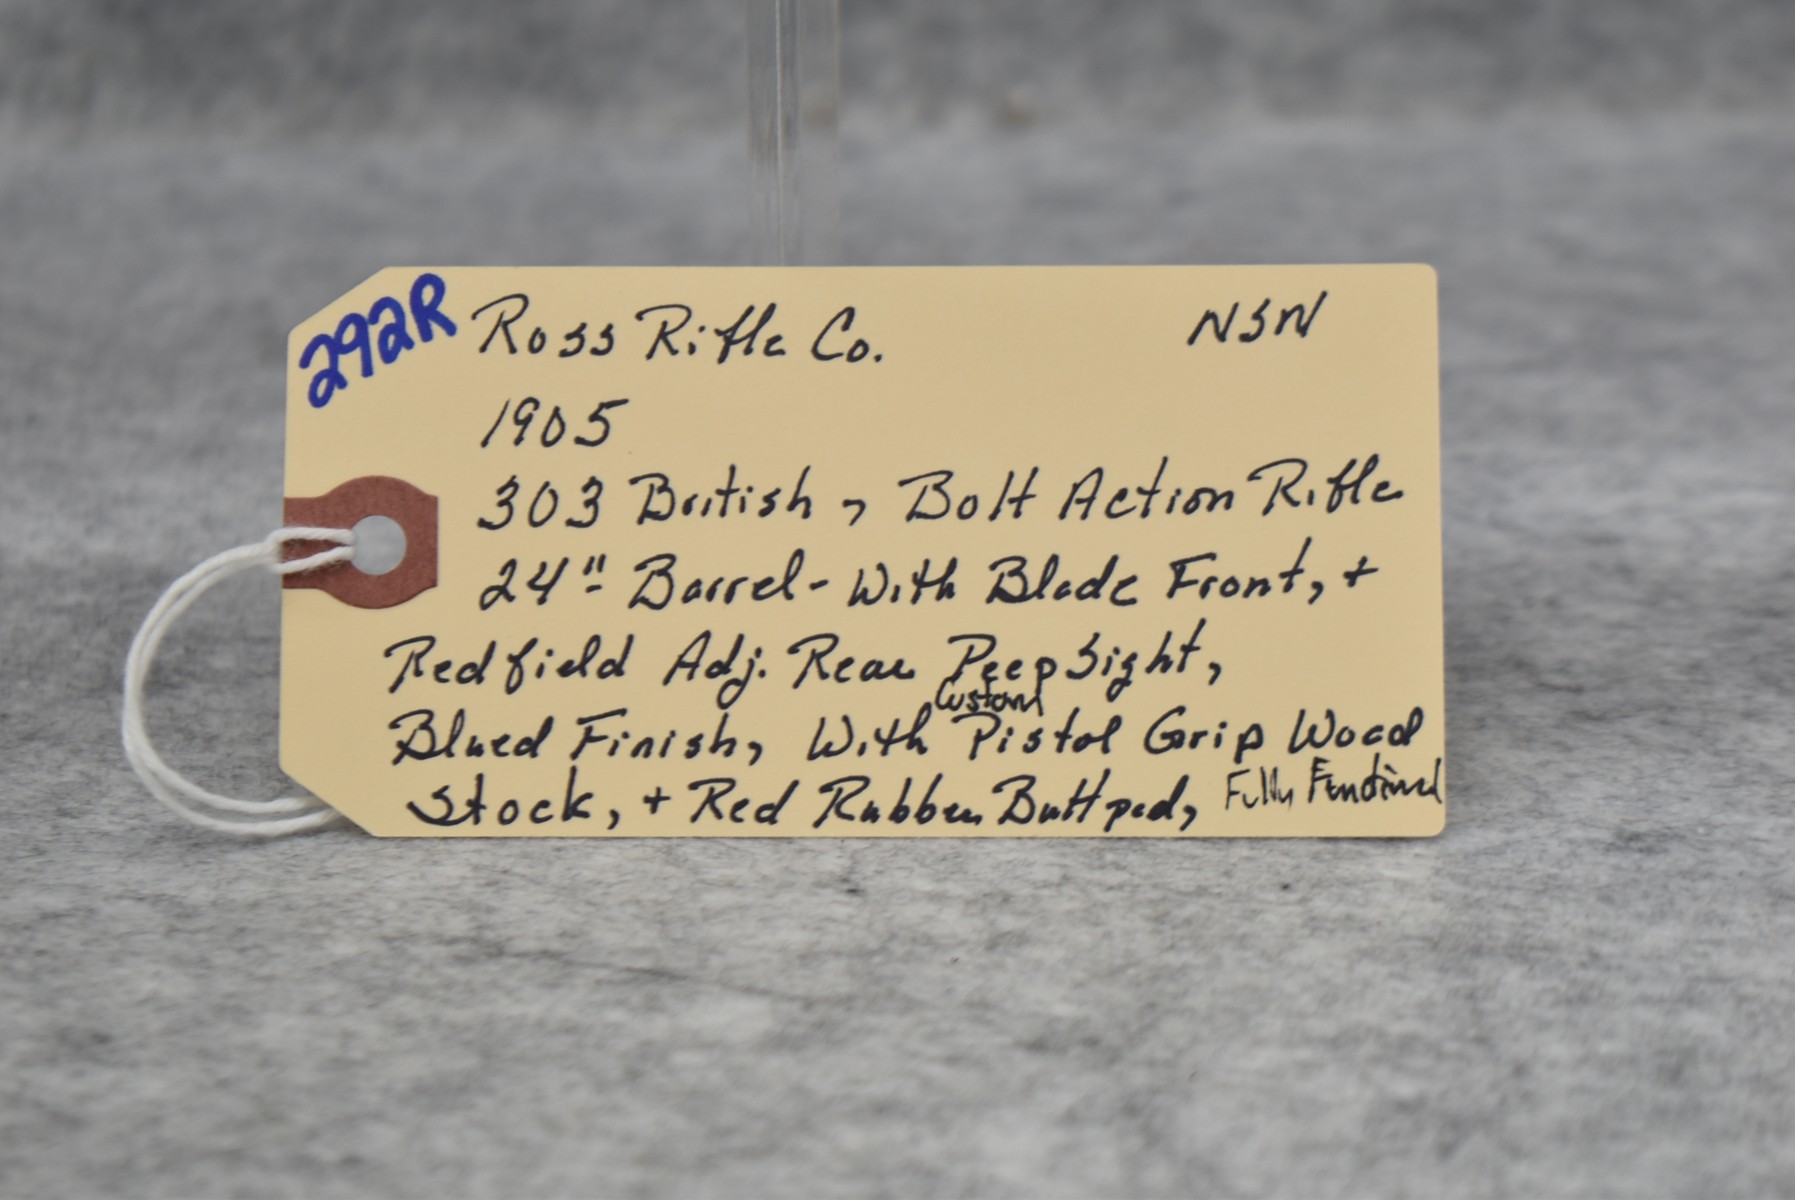 292R Ross Rifle Co. NSN
1905
303 British, Bolt Action Rifle
24" Barrel - With Blade Front, +
Redfield Adj. Rear Peep Sight,
Custom
Blued Finish, With Pistol Grip Wood
Stock, + Red Rubber Butt pad, Fully